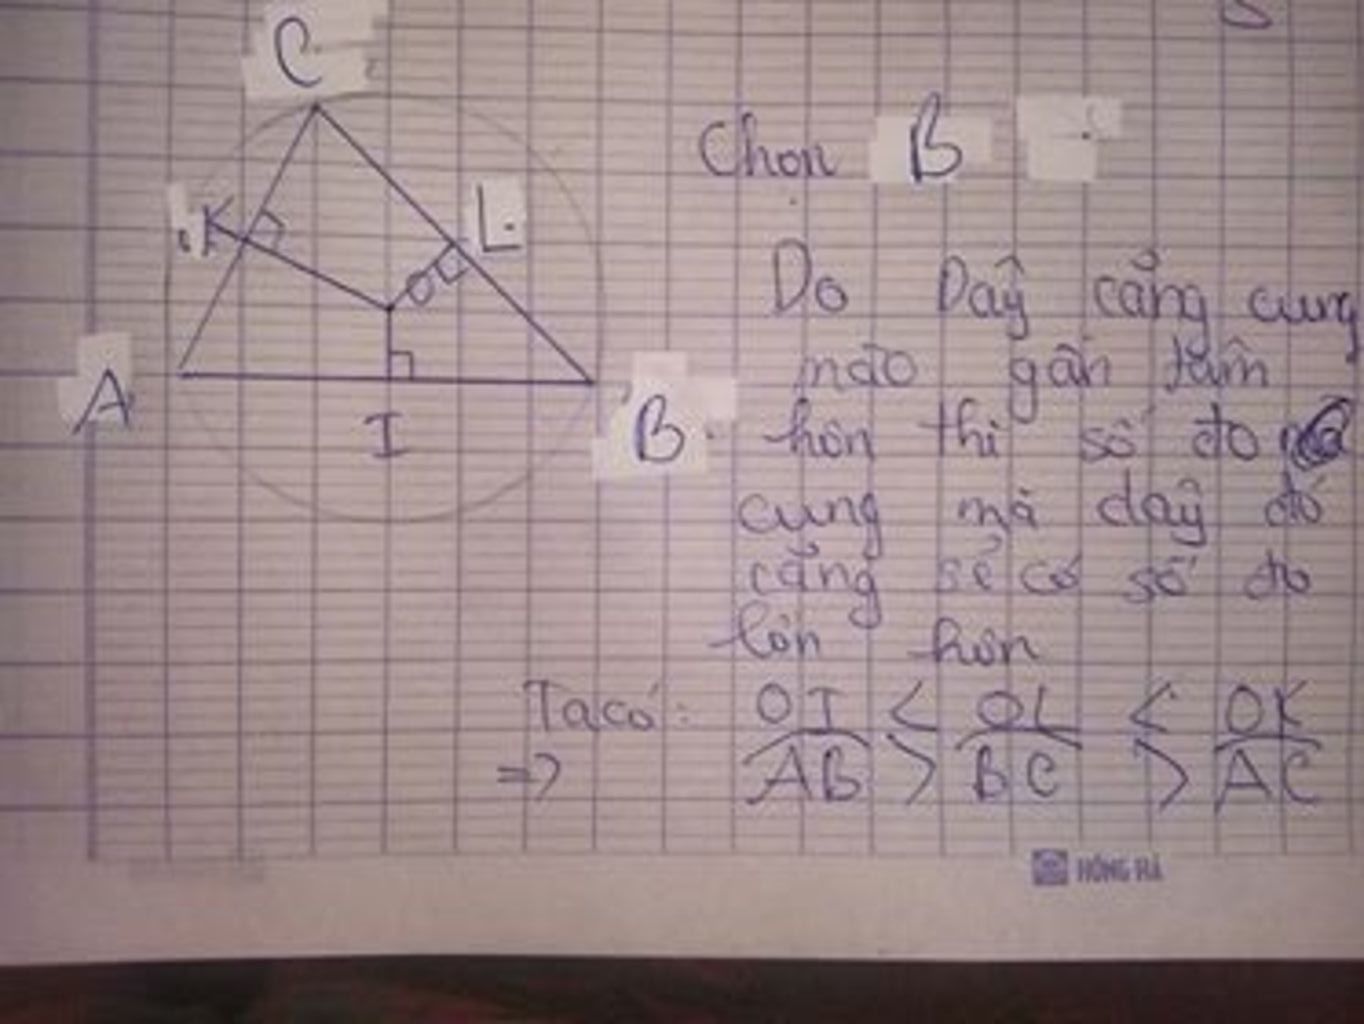 C
K
L
A
O
I
B
Chọn B
Do Dây căng cung
nào gần tâm
hơn thì số đo
cung mà dây đó
căng sẽ có số đo
lớn hơn
Ta có: OI < OL < OK
=> AB > BC > AC
HỒNG HÀ